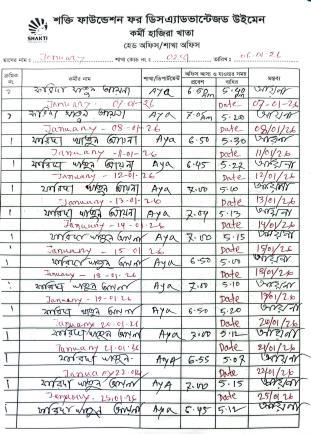 শক্তি ফাউন্ডেশন ফর ডিসএ্যাডভান্টেজড উইমেন
কর্মী হাজিরা খাতা
হেড অফিস/শাখা অফিস
SHAKTI
মাসের নাম : January শাখা কোড নং : 0259 তারিখ : 06-01-26
ক্রমিক নং কর্মীর নাম শাখা/ডিপার্টমেন্ট অফিস আসা ও যাওয়ার সময় মন্তব্য
প্রবেশ বাহির
ফরিদা খাতুন আয়না Aya 6.50 5.40 আয়না
January - 07-01-26 Date 07-01-26
ফরিদা খাতুন আয়না Aya 7.00 5.20 আয়না
January - 08-01-26 Date 08/01/26
1 ফরিদা খাতুন আয়না Aya 6.50 5.30 আয়না
January -11-01-26 Date 11/01/26
1 ফরিদা খাতুন আয়না Aya 6.45 5.22 আয়না
January - 12-01-26 Date 12/01/26
1 ফরিদা খাতুন আয়না Aya 7.00 5.10 আয়না
January - 13-01-26 Date 13/01/26
1 ফরিদা খাতুন আয়না Aya 7.07 5.13 আয়না
January - 14-01-26 Date 14/01/26
1 ফরিদা খাতুন আয়না Aya 7.00 5.15 আয়না
January - 15-01-26 Date 15/01/26
1 ফরিদা খাতুন আয়না Aya 6.50 5.00 আয়না
January - 18-01-26 Date 18/01/26
1 ফরিদা খাতুন আয়না Aya 7.00 5.10 আয়না
January - 19-01-26 Date 19/01/26
1 ফরিদা খাতুন আয়না Aya 6.50 5.20 আয়না
January 20-01-26 Date 20/01/26
1 ফরিদা খাতুন আয়না Aya 7.00 5.12 আয়না
January 21.01.26 Date 21/01/26
1 ফরিদা খাতুন AyA 6.55 5.07 আয়না
January 22.01.26 Date 22/01/26
1 ফরিদা খাতুন আয়না AyA 7.00 5.15 আয়না
January. 25.01.26 Date 25/01/26
1 ফরিদা খাতুন আয়না AyA 6.45 5.12 আয়না